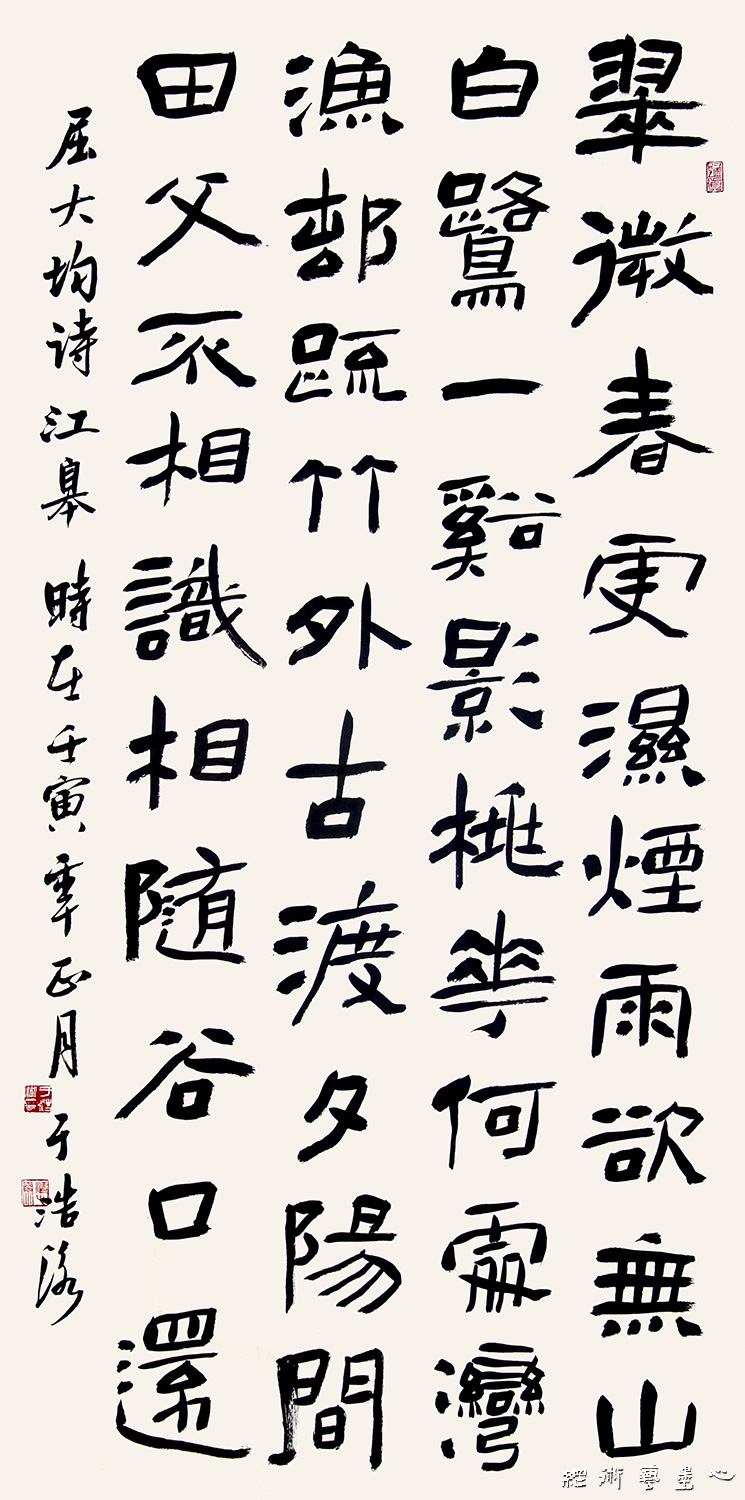 翠微春更濕煙雨欲無山
白鷺一谿影桃華何處灣
漁邨疏竹外古渡夕陽間
田父不相識相隨谷口還
屈大均诗江皋 時在壬寅年正月 于浩